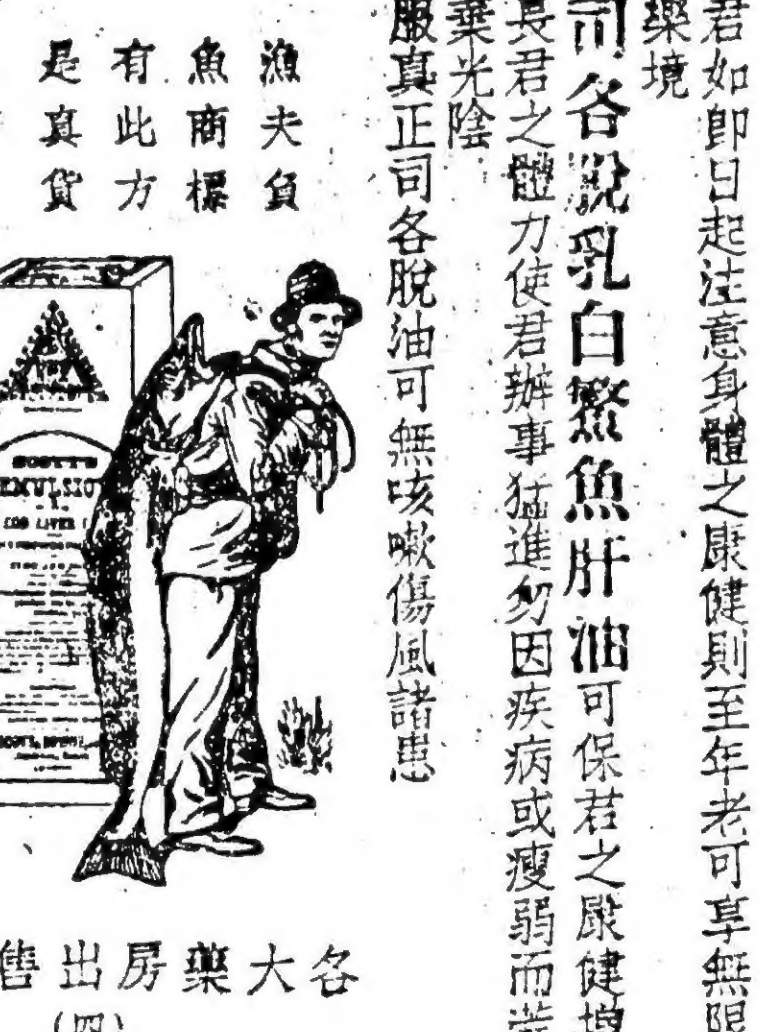 君如即日起注意身體之康健則至年老可享無限
樂境
司各脫乳白鰵魚肝油可保君之康健增
長君之體力使君辦事猛進勿因疾病或瘦弱而荒
棄光陰
服真正司各脫油可無咳嗽傷風諸患
漁夫負
魚商標
有此方
是真貨
SCOTT'S
EMULSIO
COD LIVER
各大藥房出售
(四)